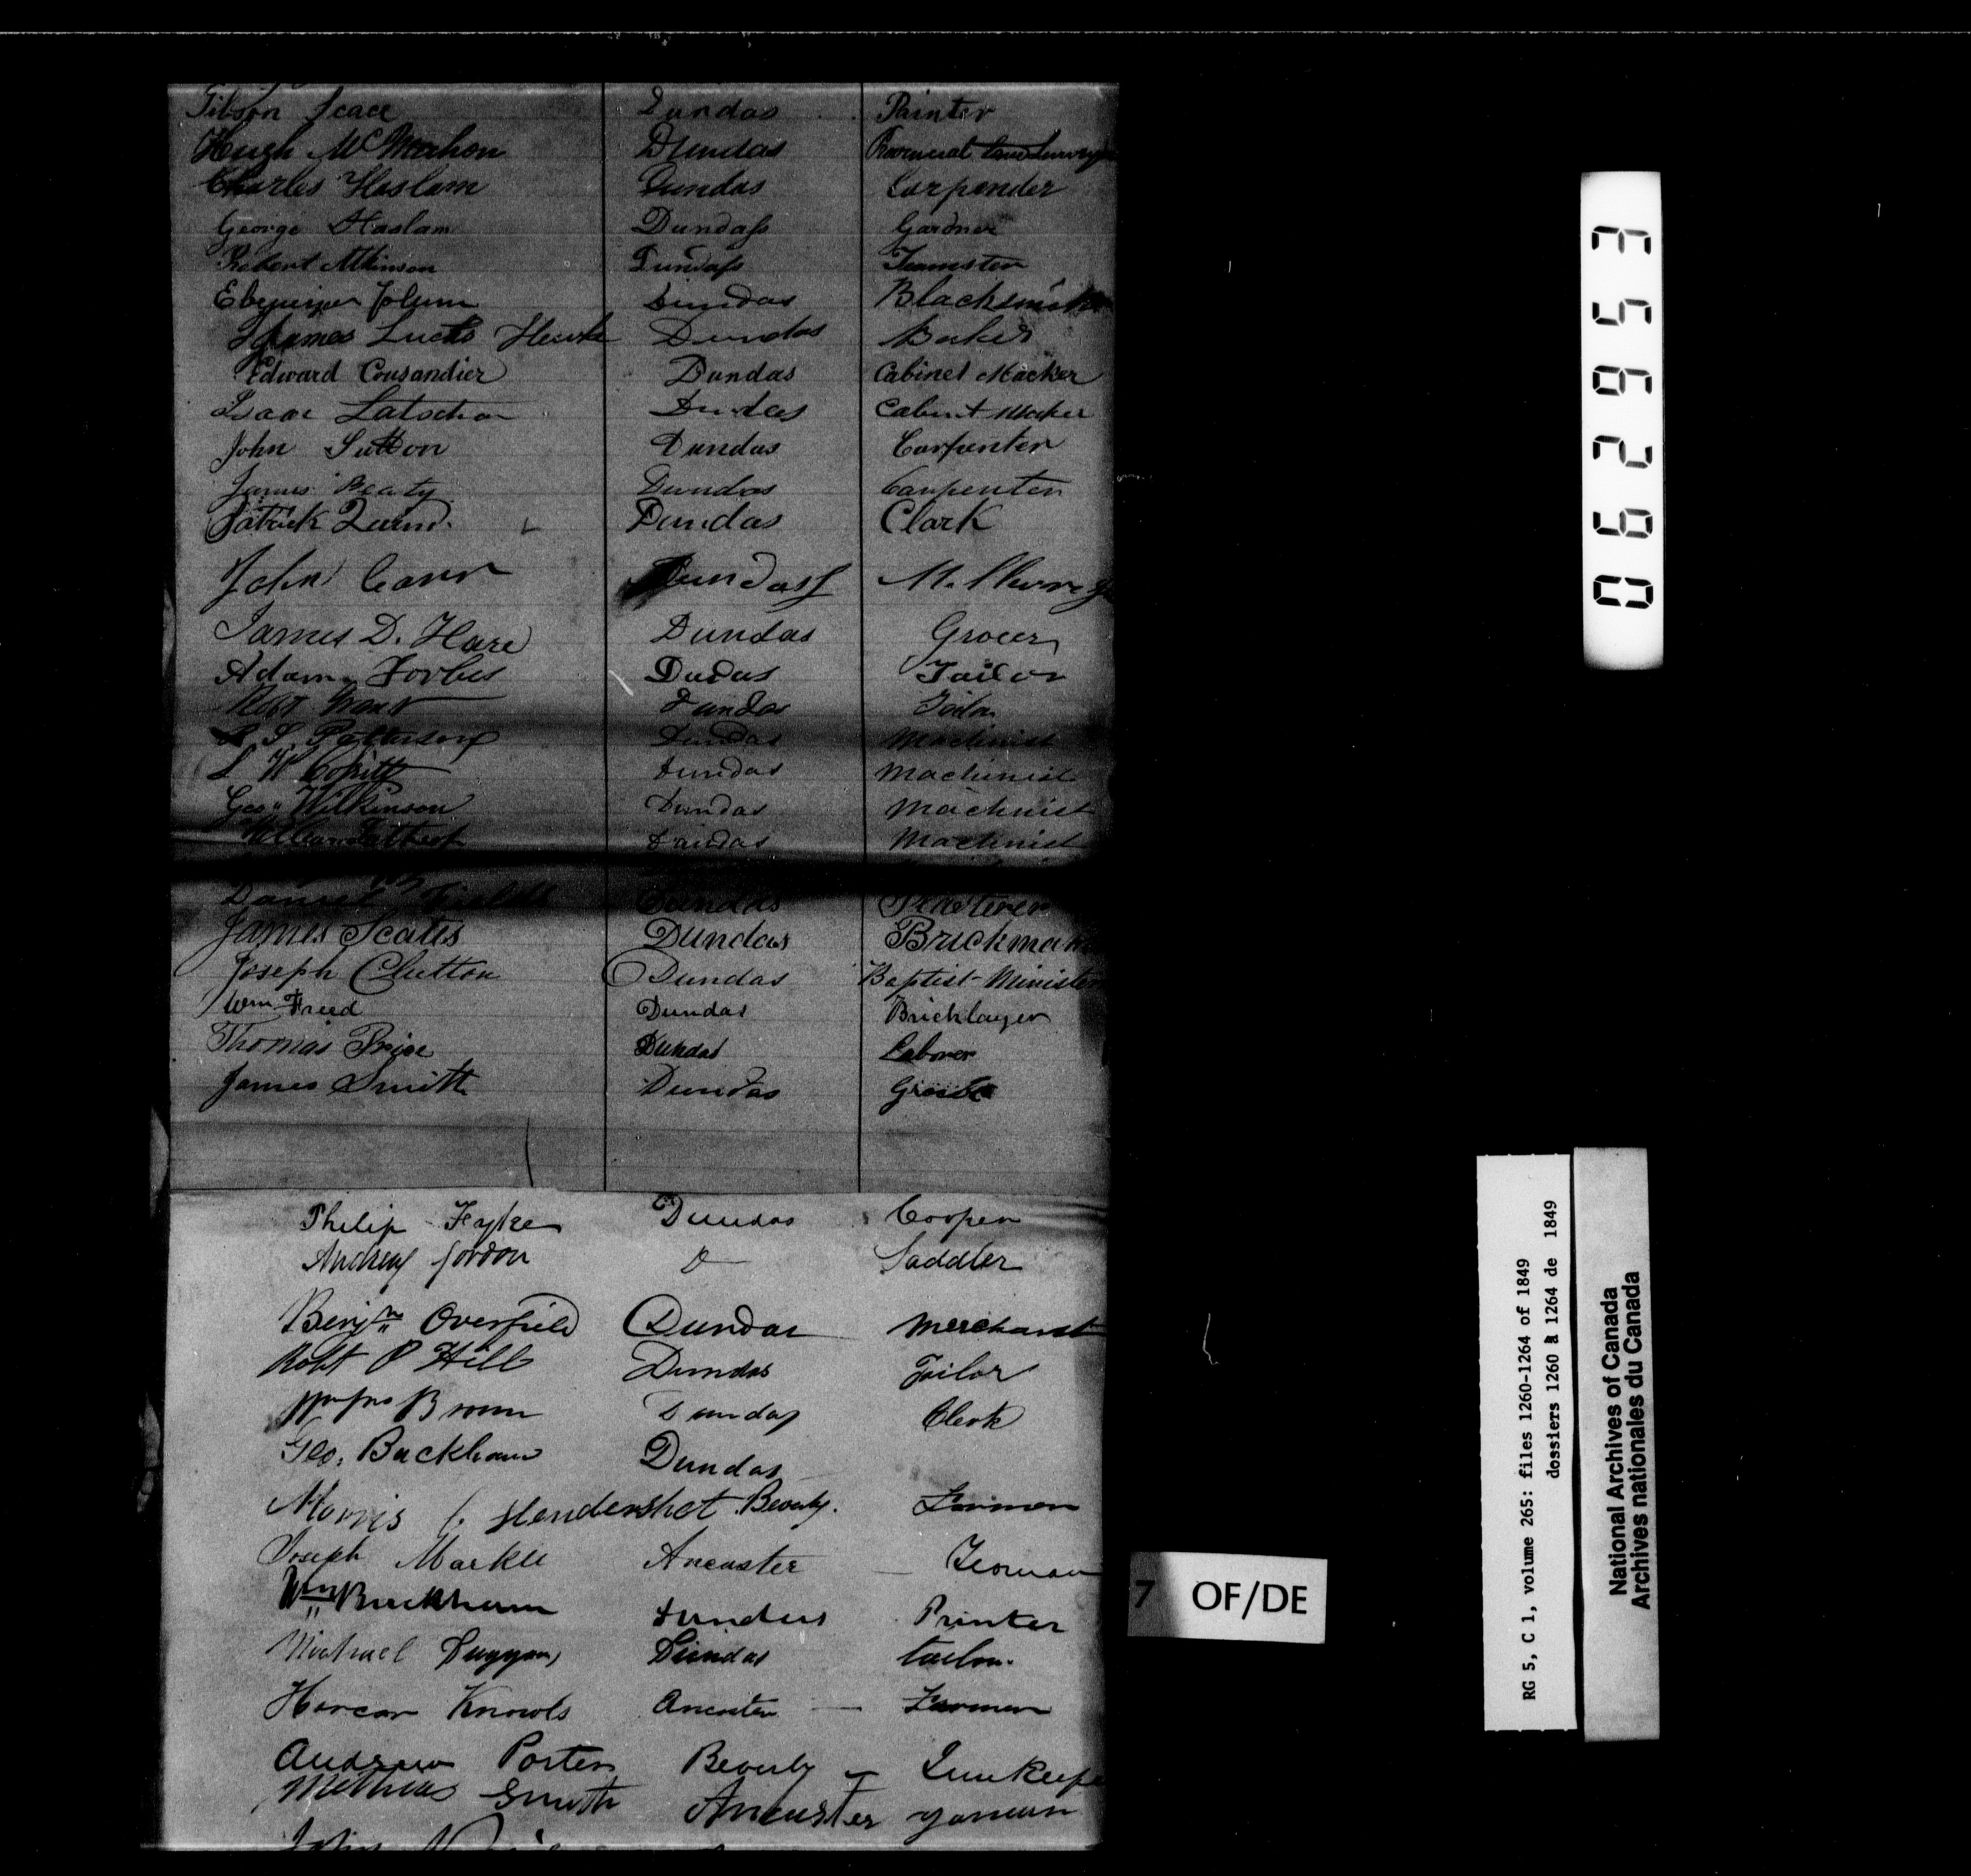 Gibson Scace Dundas Painter
Hugh McMahon Dundas Provincial Land Surveyor
Charles Haslam Dundas Carpender
George Haslam Dundass Gardner
Robert Atkinson Dundass Teamster
Ebenezer Dundas Blacksmith
James Lucks Dundas Baker
Edward Cousandier Dundas Cabinet Macker
Isaac Latschar Dundas Cabinet Macker
John Sutton Dundas Carpenter
James Beaty Dundas Carpenter
Patrick Quinn Dundas Clark
John Carr Dundass
James D. Hare Dundas Grocer
Adam Forbes Dudas Tailor
Robt Grant Dundas Tailor
Patterson Dundas Machinist
Dundas Machinist
Geo" Wilkinson Dundas Machinist
William Dundas Machinist
Daniel Dundas
James Scates Dundas Brickman
Joseph Clutton Dundas Baptist-Minister
Wm Freed Dundas Bricklayer
Thomas Price Dundas Laborer
James Smith Dundas
Philip Feyke Dundas Cooper
Andrew Gordon Saddler
Benjn Overfield Dundas Merchant
Robt P Hill Dundas Tailor
Brown Dundas Clerk
Geo. Buckham Dundas
Morris C. Hendershot Beverly. Farmer
Joseph Markle Ancaster Yeoman
Wm Buckham Dundas Printer
Michael Duggan Dundas tailor
Knowls Ancaster Farmer
Andrew Porter Beverly Innkeeper
Mathias Smith Ancaster yoman
John
062953
7 OF/DE
RG 5, C 1, volume 265: files 1260-1264 of 1849
dossiers 1260 à 1264 de 1849
National Archives of Canada
Archives nationales du Canada